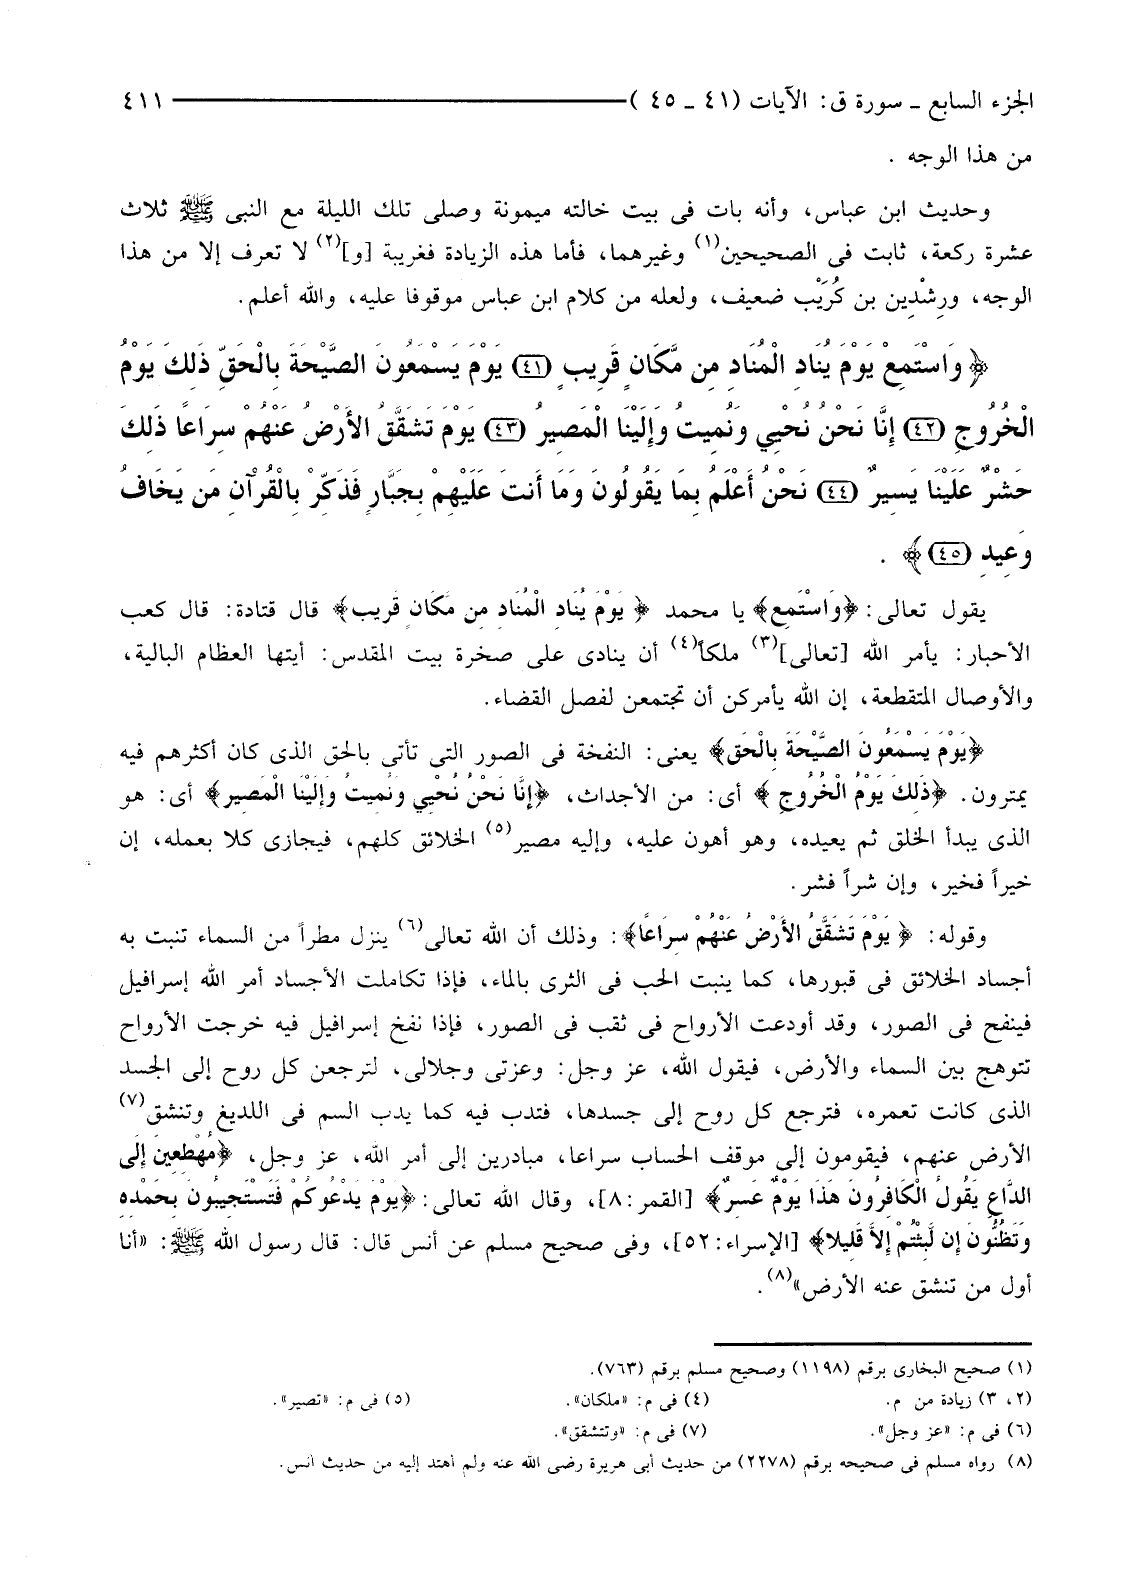 الجزء السابع ـ سورة ق: الآيات (٤١ ـ ٤٥ ) ٤١١
من هذا الوجه .
وحديث ابن عباس، وأنه بات فى بيت خالته ميمونة وصلى تلك الليلة مع النبى ﷺ ثلاث
عشرة ركعة، ثابت فى الصحيحين(١) وغيرهما، فأما هذه الزيادة فغريبة [و](٢) لا تعرف إلا من هذا
الوجه، ورِشْدين بن كُرَيْب ضعيف، ولعله من كلام ابن عباس موقوفا عليه، والله أعلم.
﴿ وَاسْتَمِعْ يَوْمَ يُنَادِ الْمُنَادِ مِن مَّكَانٍ قَرِيبٍ (٤١) يَوْمَ يَسْمَعُونَ الصَّيْحَةَ بِالْحَقِّ ذَلِكَ يَوْمُ
الْخُرُوجِ (٤٢) إِنَّا نَحْنُ نُحْيِي وَنُمِيتُ وَإِلَيْنَا الْمَصِيرُ (٤٣) يَوْمَ تَشَقَّقُ الأَرْضُ عَنْهُمْ سِرَاعًا ذَلِكَ
حَشْرٌ عَلَيْنَا يَسِيرٌ (٤٤) نَحْنُ أَعْلَمُ بِمَا يَقُولُونَ وَمَا أَنتَ عَلَيْهِم بِجَبَّارٍ فَذَكِّرْ بِالْقُرْآنِ مَن يَخَافُ
وَعِيدِ (٤٥)﴾ .
يقول تعالى: ﴿وَاسْتَمِعْ﴾ يا محمد ﴿ يَوْمَ يُنَادِ الْمُنَادِ مِن مَّكَانٍ قَرِيبٍ﴾ قال قتادة: قال كعب
الأحبار: يأمر الله [تعالى](٣) ملكاً(٤) أن ينادى على صخرة بيت المقدس: أيتها العظام البالية،
والأوصال المتقطعة، إن الله يأمركن أن تجتمعن لفصل القضاء.
﴿يَوْمَ يَسْمَعُونَ الصَّيْحَةَ بِالْحَقِّ﴾ يعنى: النفخة فى الصور التى تأتى بالحق الذى كان أكثرهم فيه
يمترون. ﴿ذَلِكَ يَوْمُ الْخُرُوجِ ﴾ أى: من الأجداث، ﴿إِنَّا نَحْنُ نُحْيِي وَنُمِيتُ وَإِلَيْنَا الْمَصِيرُ﴾ أى: هو
الذى يبدأ الخلق ثم يعيده، وهو أهون عليه، وإليه مصير(٥) الخلائق كلهم، فيجازى كلا بعمله، إن
خيراً فخير، وإن شراً فشر.
وقوله: ﴿ يَوْمَ تَشَقَّقُ الأَرْضُ عَنْهُمْ سِرَاعًا﴾: وذلك أن الله تعالى(٦) ينزل مطراً من السماء تنبت به
أجساد الخلائق فى قبورها، كما ينبت الحب فى الثرى بالماء، فإذا تكاملت الأجساد أمر الله إسرافيل
فينفح فى الصور، وقد أودعت الأرواح فى ثقب فى الصور، فإذا نفخ إسرافيل فيه خرجت الأرواح
تتوهج بين السماء والأرض، فيقول الله، عز وجل: وعزتى وجلالى، لترجعن كل روح إلى الجسد
الذى كانت تعمره، فترجع كل روح إلى جسدها، فتدب فيه كما يدب السم فى اللديغ وتنشق(٧)
الأرض عنهم، فيقومون إلى موقف الحساب سراعا، مبادرين إلى أمر الله، عز وجل، ﴿مُهْطِعِينَ إِلَى
الدَّاعِ يَقُولُ الْكَافِرُونَ هَذَا يَوْمٌ عَسِرٌ﴾ [القمر:٨]، وقال الله تعالى: ﴿يَوْمَ يَدْعُوكُمْ فَتَسْتَجِيبُونَ بِحَمْدِهِ
وَتَظُنُّونَ إِن لَّبِثْتُمْ إِلاَّ قَلِيلا﴾ [الإسراء:٥٢]، وفى صحيح مسلم عن أنس قال: قال رسول الله ﷺ: «أنا
أول من تنشق عنه الأرض»(٨).
(١) صحيح البخارى برقم (١١٩٨) وصحيح مسلم برقم (٧٦٣).
(٢، ٣) زيادة من م. (٤) فى م: «ملكان». (٥) فى م: «تصير».
(٦) فى م: «عز وجل». (٧) فى م: «وتتشقق».
(٨) رواه مسلم فى صحيحه برقم (٢٢٧٨) من حديث أبى هريرة رضى الله عنه ولم أهتد إليه من حديث أنس.